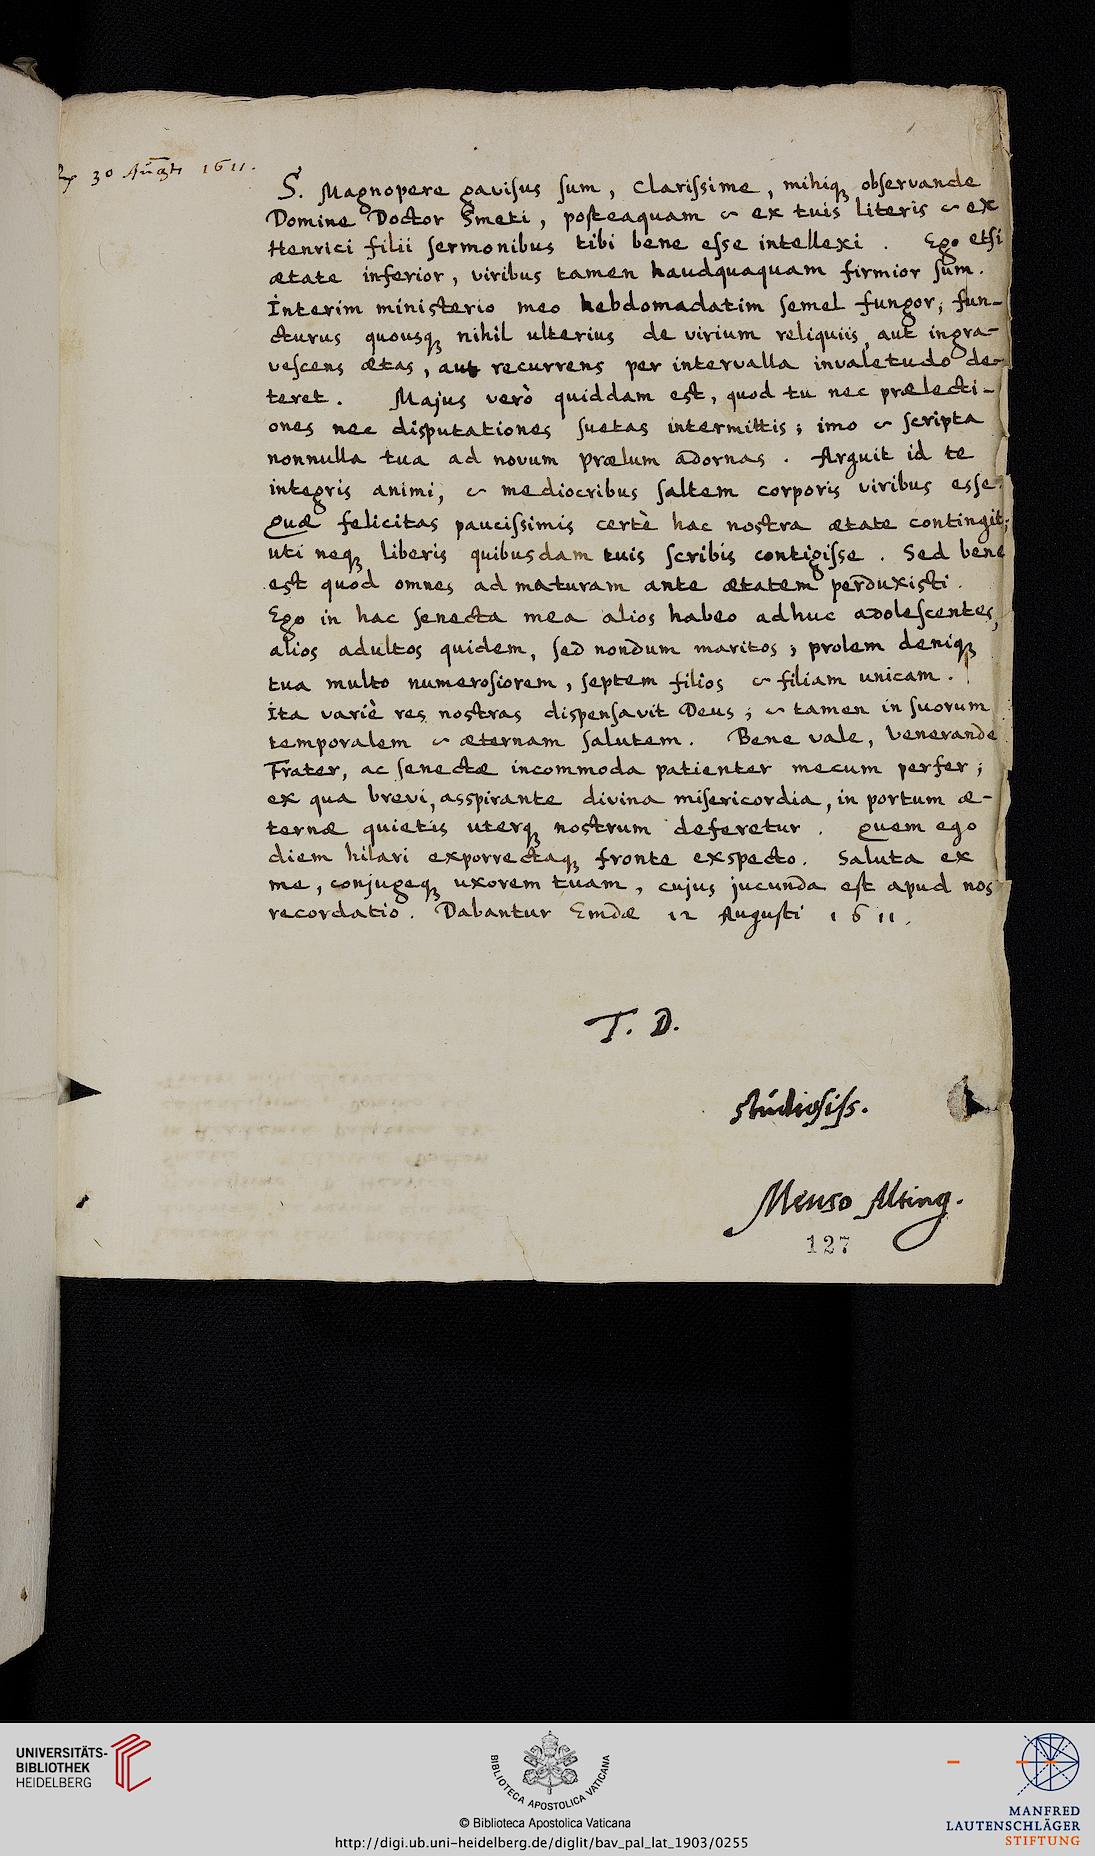 30 Augti 1611.
S. Magnopere gavisus sum, Clarissime, mihiq observande
Domine Doctor Smeti, posteaquam & ex tuis literis & ex
Henrici filii sermonibus tibi bene esse intellexi. Ego etsi
ætate inferior, viribus tamen haudquaquam firmior sum.
Interim ministerio meo hebdomadatim semel fungor; fun-
cturus quousq nihil ulterius de virium reliquiis, aut ingra-
vescens ætas, aut recurrens per intervalla invaletudo de-
teret. Majus verò quiddam est, quod tu nec prælecti-
ones nec disputationes suetas intermittis; imo & scripta
nonnulla tua ad novum prælum adornas. Arguit id te
integris animi, & mediocribus saltem corporis viribus esse.
Quæ felicitas paucissimis certè hac nostra ætate contingit;
uti neq liberis quibusdam tuis scribis contigisse. Sed bene
est quod omnes ad maturam ante ætatem perduxisti.
Ego in hac senecta mea alios habeo adhuc adolescentes,
alios adultos quidem, sed nondum maritos; prolem deniq
tua multo numerosiorem, septem filios & filiam unicam.
Ita variè res nostras dispensavit Deus; & tamen in suorum
temporalem & æternam salutem. Bene vale, Venerande
Frater, ac senectæ incommoda patienter mecum perfer;
ex qua brevi, asspirante divina misericordia, in portum æ-
ternæ quietis uterq nostrum deferetur. Quem ego
diem hilari exporrectaq fronte exspecto. Saluta ex
me, conjugeq uxorem tuam, cujus jucunda est apud nos
recordatio. Dabantur Emdæ 12 Augusti 1611.
T. D.
studiosiss.
Menso Alting.
127
UNIVERSITÄTS-
BIBLIOTHEK
HEIDELBERG
BIBLIOTECA APOSTOLICA VATICANA
© Biblioteca Apostolica Vaticana
http://digi.ub.uni-heidelberg.de/diglit/bav_pal_lat_1903/0255
MANFRED
LAUTENSCHLÄGER
STIFTUNG